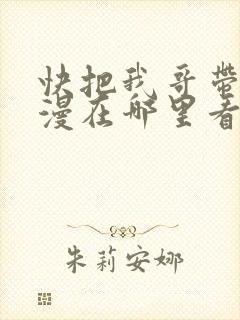 快把我哥带
漫在哪里看
朱莉安娜